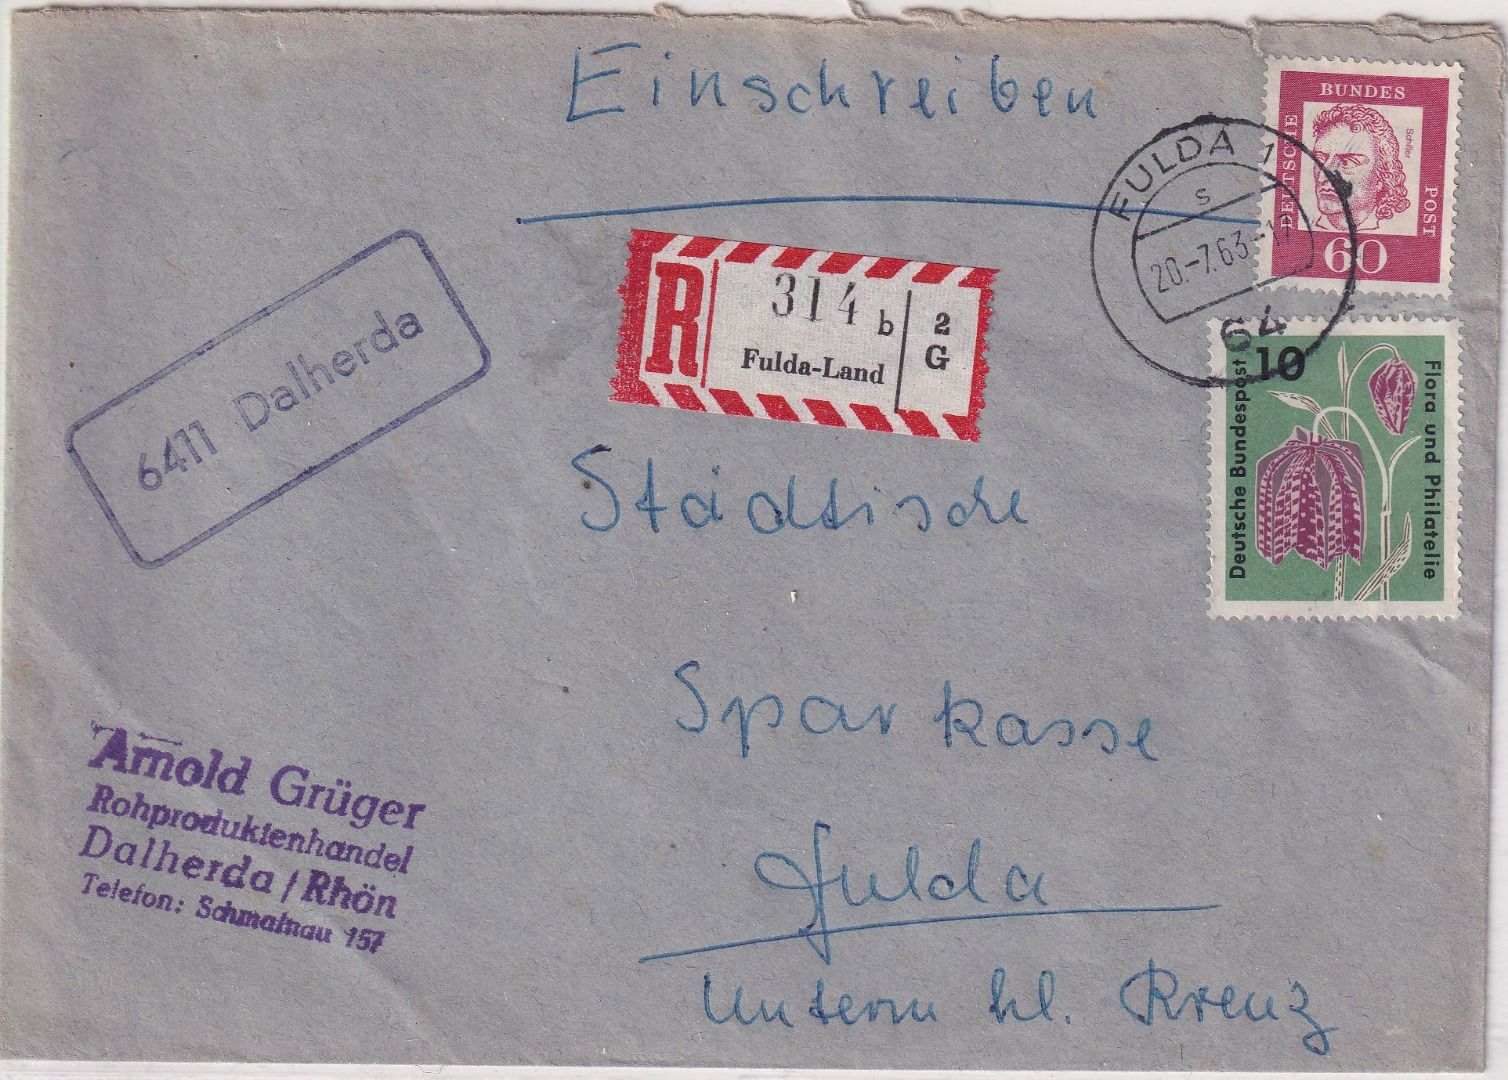 Einschreiben
BUNDES
DEUTSCHE
POST
Schiller
60
FULDA 1
s
20.-7.63-17
64
R
314 b
Fulda-Land
2
G
6411 Dalherda
10
Deutsche Bundespost
Flora und Philatelie
Städtische
Sparkasse
Fulda
Unterm hl. Kreuz
Arnold Grüger
Rohproduktenhandel
Dalherda / Rhön
Telefon: Schmalnau 157